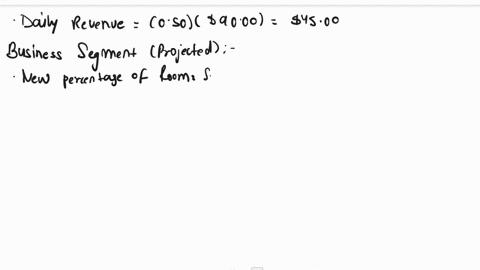 · Daily Revenue = (0.50)($90.00) = $45.00
Business Segment (Projected):-
· New percentage of Rooms S